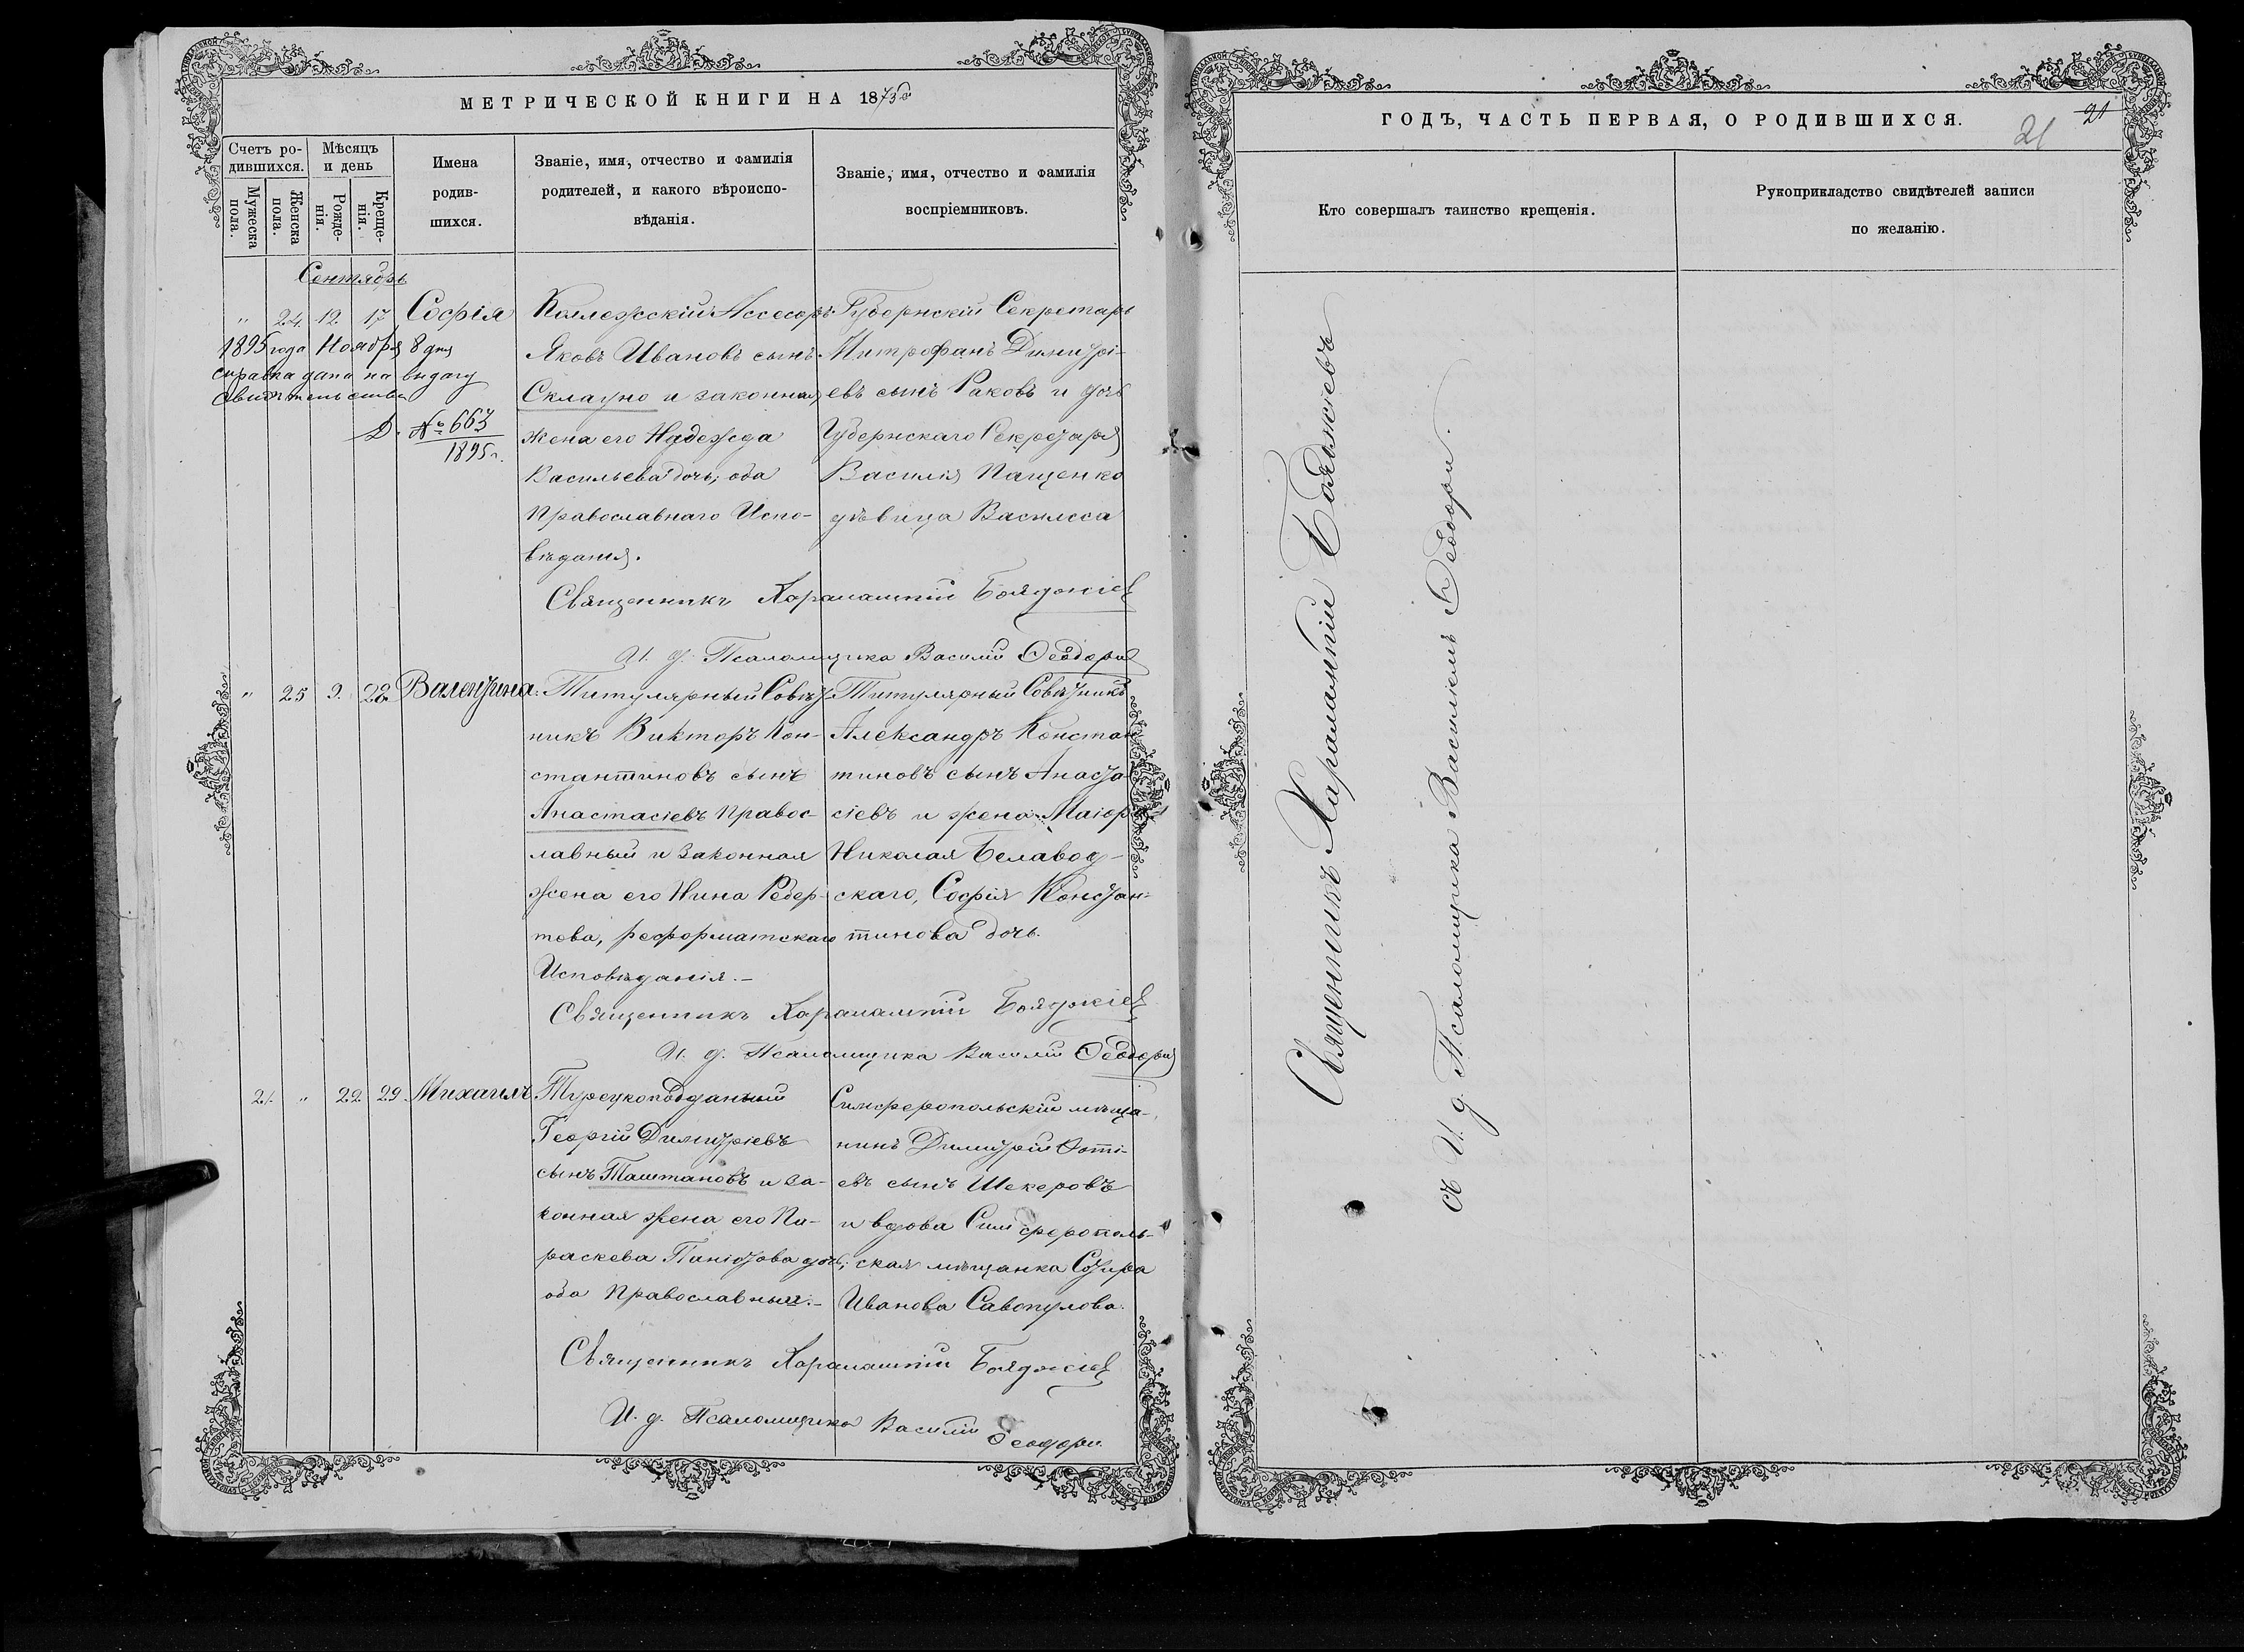 МЕТРИЧЕСКОЙ КНИГИ НА 1875й
Счетъ ро-
дившихся.
Мѣсяцъ
и день
Мужеска
пола.
Женска
пола.
Рожде-
нія.
Креще-
нія.
Имена
родив-
шихся.
Званіе, имя, отчество и фамилія
родителей, и какого вѣроиспо-
вѣданія.
Званіе, имя, отчество и фамилія
воспріемниковъ.
Сентябрь
" 24. 12. 17 Софія
1895 года Ноября 8 дня
справка дана на выдачу
свидѣтельства
№ 663
1895 г.
Коллежскій Ассесоръ
Яковъ Ивановъ сынъ
и законная
жена его Надежда
Васильева дочь, оба
Православнаго Испо-
вѣданія.
Губернскій Секретарь
Митрофанъ Димитрі-
евъ сынъ Раковъ и дочь
Губернскаго Секретаря
Василія Пащенко
дѣвица Василиса
Священникъ Харалампій Бояджіев
И. д. Псаломщика Василій Ѳеодори
" 25 9. 28 Валентина.
Титулярный Совѣт-
никъ Викторъ Кон-
стантиновъ сынъ
Анастасіевъ правос-
лавный и законная
жена его Нина Робер-
това, реформатскаго
Исповѣданія.—
Титулярный Совѣтникъ
Александръ Констан
тиновъ сынъ Анаста-
сіевъ и жена Маіора
Николая Белавод-
скаго, Софія Констан-
тинова дочь.
Священникъ Харалампій Бояджіев
И. д. Псаломщика Василій Ѳеодори
21. " 22 29. Михаилъ
Турецкоподданный
Георгій Димитріевъ
сынъ Таштановъ и за-
конная жена его Па-
раскева Панаіотова дочь;
оба православные.—
Симферопольскій мѣща-
нинъ Димитрій Фоті-
евъ сынъ Шекеровъ
и вдова Симферополь-
ская мѣщанка Сотира
Иванова Савопулова.
Священникъ Харалампій Бояджіев
И. д. Псаломщика Василій Ѳеодори.
ГОДЪ, ЧАСТЬ ПЕРВАЯ, О РОДИВШИХСЯ.
21
21
Кто совершалъ таинство крещенія.
Рукоприкладство свидѣтелей записи
по желанію.
Священникъ Харалампій Бояджіевъ
съ И. д. Псаломщика Василіемъ Ѳеодори.